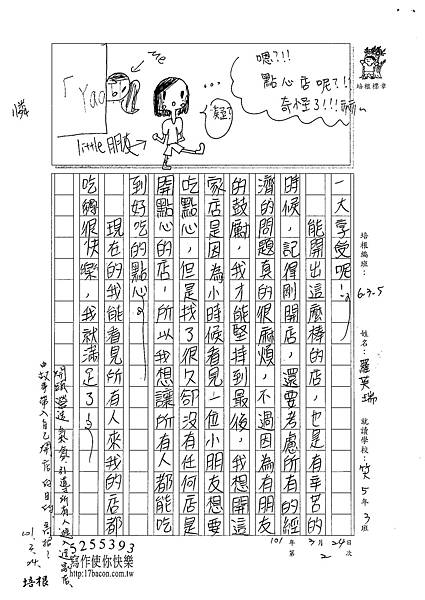 嗯?!!
點心店呢?!!
奇怪了!!!
...
Me
「Yao
little朋友
培根標章
一大享受呢!
能開出這麼棒的店,也是有辛苦的
時候,記得剛開店,還要考慮所有的經
濟的問題真的很麻煩,不過因為有朋友
的鼓勵,我才能堅持到最後,我想開這
家店是因為小時候看見一位小朋友想要
吃點心,但是找了很久卻沒有任何店是
開點心的,所以我想讓所有人都能吃
到好吃的點心。
現在的我能看見所有人來我的店都
吃得很快樂,我就滿足了!
培根編班:6-3-5
姓名:羅英瑞
就讀學校:笑5年3班
101年3月24日
第2次
5255393
寫作使你快樂
http://17bacon.com.tw/
培根